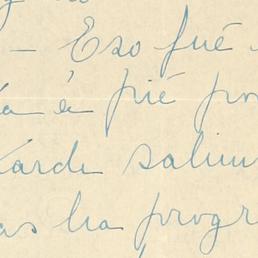 — Eso fué
a è pié pro
tarde salim
as ha progr